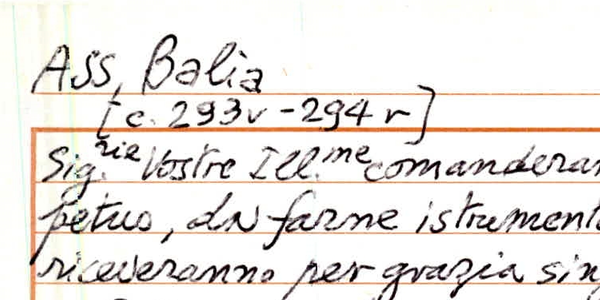 ASS, Balia
[c. 293v - 294r]
Sig.rie Vostre Ill.me comanderan
petuo, da farne istrument
riceveranno per grazia sin